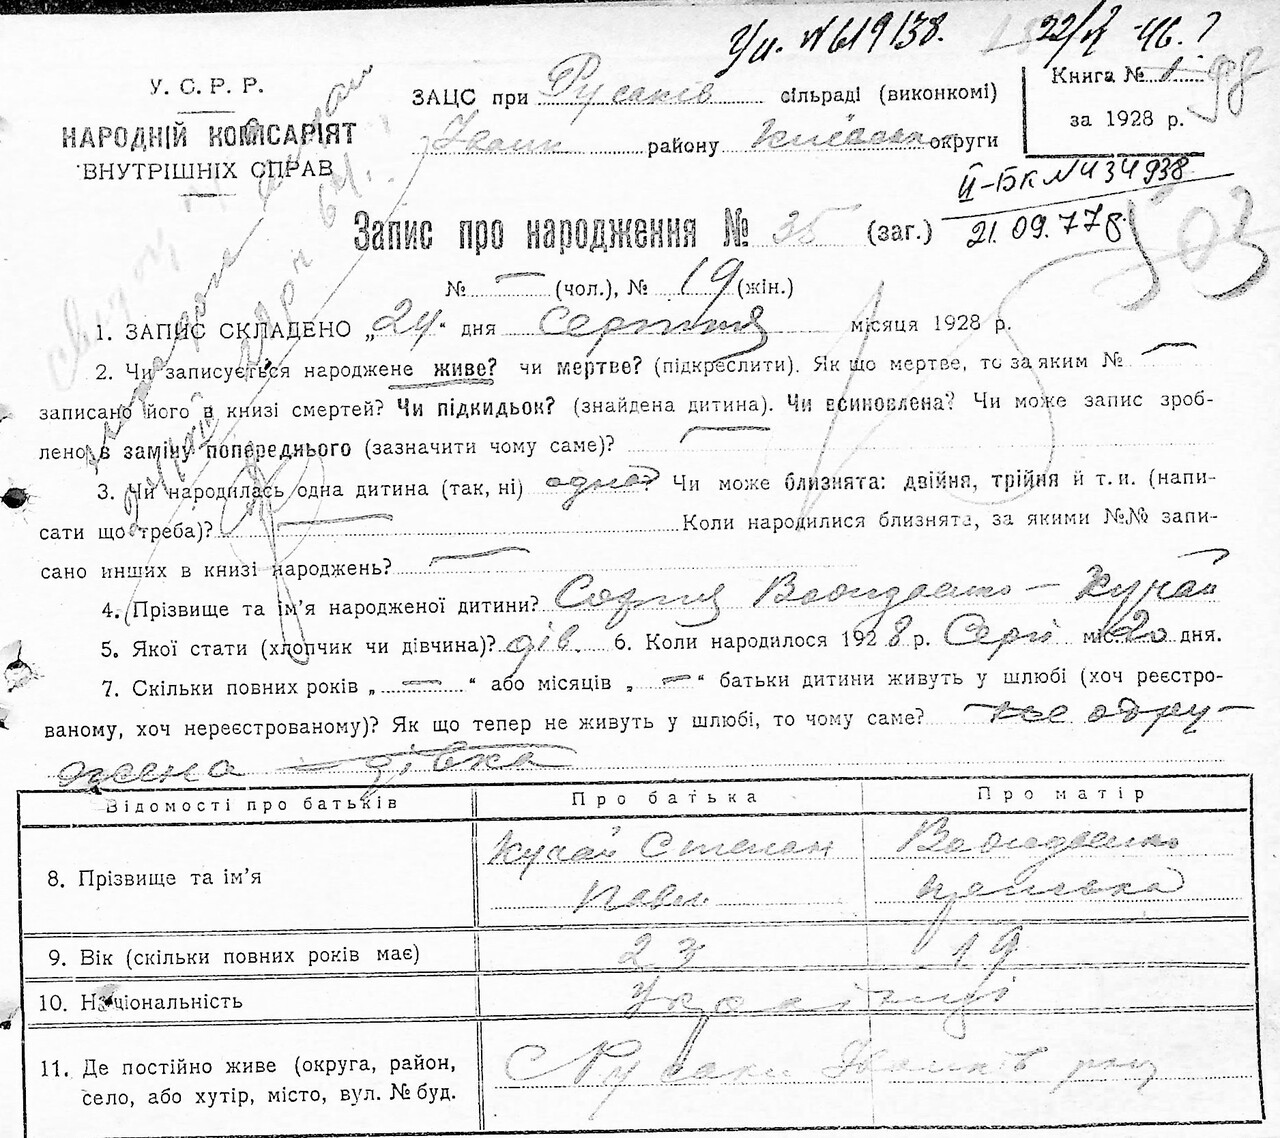 Ун. №619/38. 22/IV -46.?
У. С. Р. Р.
НАРОДНІЙ КОМІСАРІЯТ
ВНУТРІШНІХ СПРАВ
ЗАЦС при Русаків сільраді (виконкомі)
Іванк району Київськ округи
Книга № 1
за 1928 р.
98
ІІ-БК №434938
21.09.77р
503
Запис про народження № 35 (заг.)
№ — (чол.), № 19 (жін.)
1. ЗАПИС СКЛАДЕНО „24" дня серпня місяця 1928 р.
2. Чи записується народжене живе? чи мертве? (підкреслити). Як що мертве, то за яким № —
записано його в книзі смертей? Чи підкидьок? (знайдена дитина). Чи всиновлена? Чи може запис зроб-
лено в заміну попереднього (зазначити чому саме)? —
3. Чи народилась одна дитина (так, ні) одна? Чи може близнята: двійня, трійня й т. и. (напи-
сати що треба)? — Коли народилися близнята, за якими №№ запи-
сано инших в книзі народжень? —
4. Прізвище та ім'я народженої дитини? Софія — Кучай
5. Якої стати (хлопчик чи дівчина)? дів. 6. Коли народилося 1928 р. Серп міс. 20 дня.
7. Скільки повних років „ — " або місяців „ — " батьки дитини живуть у шлюбі (хоч реєстро-
ваному, хоч нереєстрованому)? Як що тепер не живуть у шлюбі, то чому саме? не одру-
жена — дівка
Відомості про батьків Про батька Про матір
8. Прізвище та ім'я Кучай Степан
Павл.
9. Вік (скільки повних років має) 23 19
10. Національність Українці
11. Де постійно живе (округа, район, Русаки Іванків рну
село, або хутір, місто, вул. № буд.